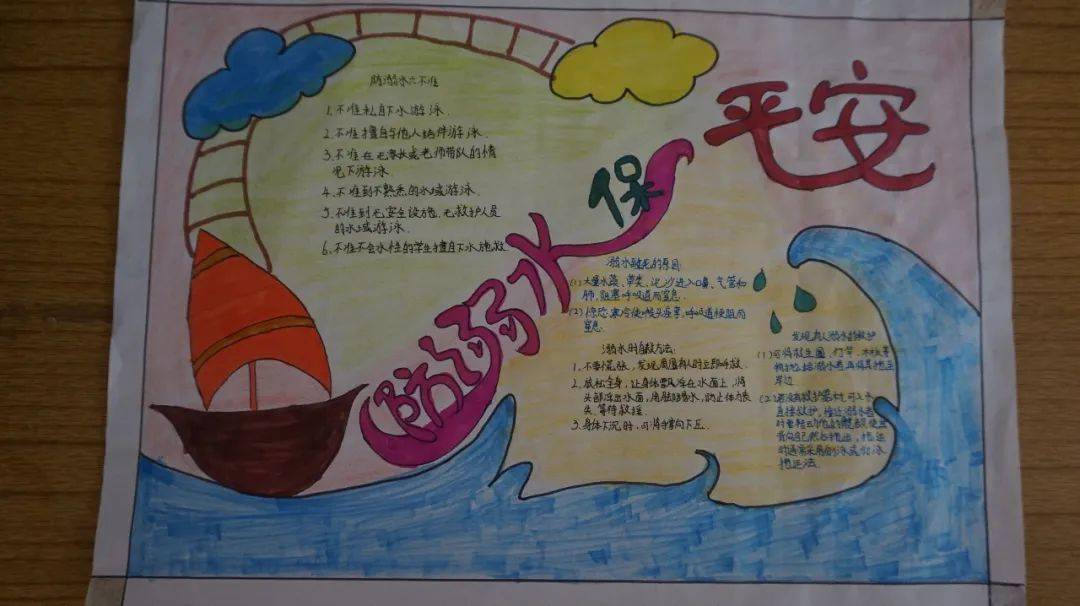 防溺水保平安
防溺水六不准
1.不准私自下水游泳.
2.不准擅自与他人结伴游泳.
3.不准在无家长或老师带队的情
况下游泳.
4.不准到不熟悉的水域游泳.
5.不准到无安全设施、无救护人员
的水域游泳.
6.不准不会水性的学生擅自下水施救.
溺水致死的原因:
(1)大量水藻、草类、泥沙进入口鼻、气管和
肺,阻塞呼吸道而窒息.
(2)惊恐、寒冷使喉头痉挛,呼吸道梗阻而
窒息.
溺水时自救方法:
1.不要慌张,发现周围有人时立即呼救.
2.放松全身,让身体飘浮在水面上,将
头部浮出水面,用脚踢水,防止体力丧
失,等待救援.
3.身体下沉时,可将手掌向下压.
发现有人溺水的救护
(1)可将救生圈、竹竿、木板等
抛给溺水者,再将其拖至
岸边.
(2)若没有救护器材,可入水
直接救护.接近溺水者
时要转动他的髋部,使其
背向自己然后拖运.拖运
时通常采用侧泳或仰泳
拖运法.